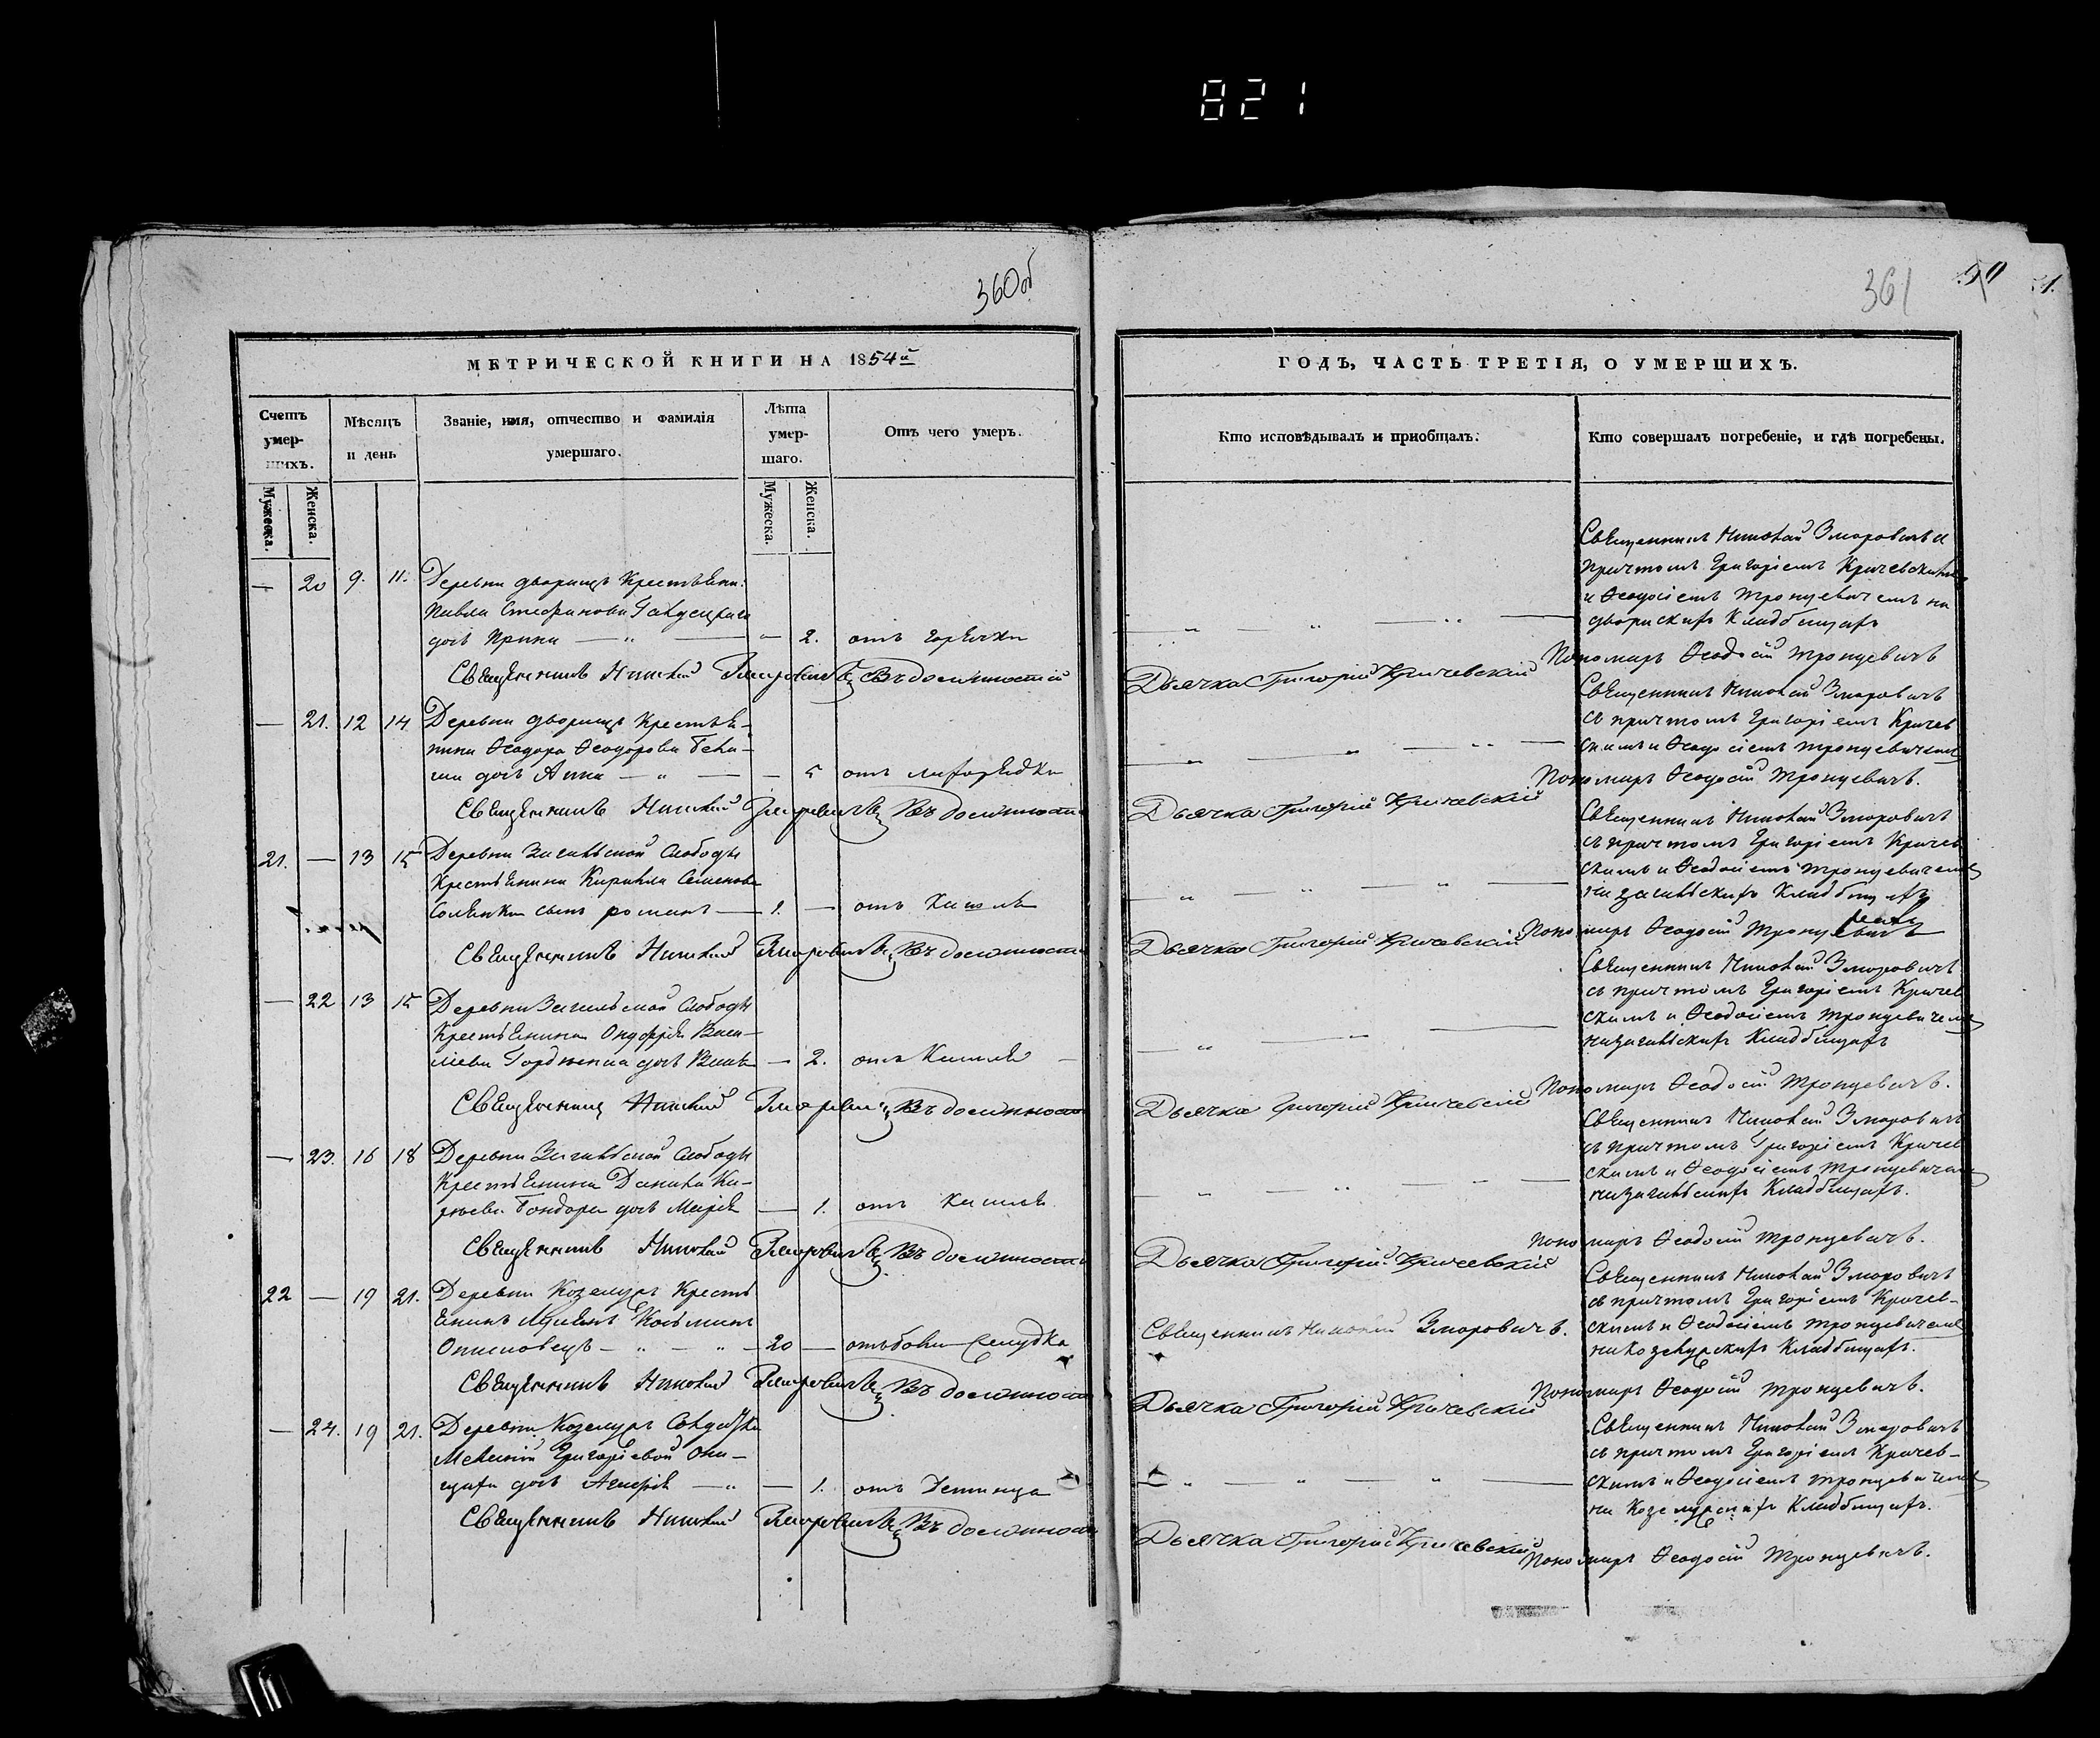 821
360об
361
МЕТРИЧЕСКОЙ КНИГИ НА 1854й
ГОДЪ, ЧАСТЬ ТРЕТІЯ, О УМЕРШИХЪ.
Счетъ умер-шихъ.
Мѣсяцъ и день
Званіе, имя, отчество и фамилія умершаго.
Лѣта умер-шаго.
Отъ чего умеръ.
Кто исповѣдывалъ и приобщалъ.
Кто совершалъ погребеніе, и гдѣ погребены.
Мужеска.
Женска.
Мужеска.
Женска.
— 20 9. 11. Деревни дворищъ Крестьяни.
Павла Стефанова
дочь — „ — — 2. отъ горячки
Священникъ Николай Зморовичъ и
причтомъ Григоріемъ Кричевскимъ
и Ѳеодосіемъ Тронцевичемъ на
дворискихъ Кладбищахъ
Священникъ Николай Зморовичъ Въ должности
Дьячка Григорій Кричевскій
Пономарь Ѳеодосій Тронцевичъ
— 21. 12 14 Деревни дворищъ Крестья-
нина Ѳеодора Ѳеодорова
дочь Анна — „ — — 5 отъ лихорадки
Священникъ Николай Зморовичъ
съ причтомъ Григоріемъ Кричев
скимъ и Ѳеодосіемъ Тронцевичемъ
Священникъ Николай Зморовичъ Въ должности
Дьячка Григорій Кричевскій
Пономарь Ѳеодосій Тронцевичъ.
21. — 13 15 Деревни Загальской Слободы
Крестьянина Кирилла Семенова
сынъ романъ — 1. — отъ Кашля
Священникъ Николай Зморовичъ
съ причтомъ Григоріемъ Кричев
скимъ и Ѳеодосіемъ Тронцевичемъ
на загальскихъ Кладбищахъ
Священникъ Николай Зморовичъ Въ должности
Дьячка Григорій Кричевскій
Пономарь Ѳеодосій Тронцевичъ
— 22 13 15 Деревни Загальской Слободы
Крестьянина Онуфрія Васи-
лієва дочь — 2. отъ Кашля —
Священникъ Николай Зморовичъ
съ причтомъ Григоріемъ Кричев
скимъ и Ѳеодосіемъ Тронцевичемъ
на загальскихъ Кладбищахъ
Священникъ Николай Въ должности
Дьячка Григорій Кричевскій
Пономарь Ѳеодосій Тронцевичъ.
— 23. 16 18 Деревни Загальской Слободы
Крестьянина Данила
Бондаря дочь Марія — 1. отъ Кашля
Священникъ Николай Зморовичъ
съ причтомъ Григоріемъ Кричев
скимъ и Ѳеодосіемъ Тронцевичемъ
на загальскихъ Кладбищахъ.
Священникъ Николай Зморовичъ Въ должности
Дьячка Григорій Кричевскій
Пономарь Ѳеодосій Тронцевичъ.
22 — 19 21. Деревни Кожелужъ Кресть
янинъ Косьминъ
— „ — „ — 20 — отъ боли желудка
Священникъ Николай Зморовичъ.
Священникъ Николай Зморовичъ
съ причтомъ Григоріемъ Кричев-
скимъ и Ѳеодосіемъ Тронцевичемъ
Кладбищахъ.
Священникъ Николай Зморовичъ Въ должности
Дьячка Григорій Кричевскій
Пономарь Ѳеодосій Тронцевичъ.
— 24. 19 21. Деревни Кожелужъ Солдатки
Григоріевой
дочь — „ — 1. отъ
Священникъ Николай Зморовичъ
съ причтомъ Григоріемъ Кричев-
скимъ и Ѳеодосіемъ Тронцевичемъ
на Кладбищахъ.
Священникъ Николай Зморовичъ Въ должности
Дьячка Григорій Кричевскій
Пономарь Ѳеодосій Тронцевичъ.